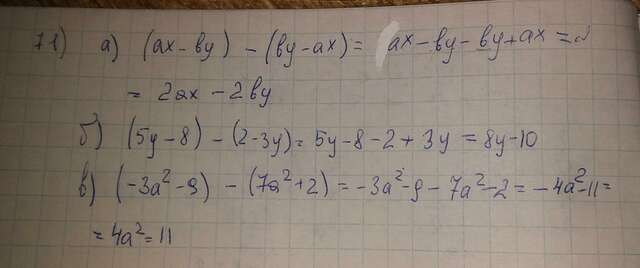 71) а) (ax - by) - (by - ax) = ax - by - by + ax =
= 2ax - 2by
б) (5y - 8) - (2 - 3y) = 5y - 8 - 2 + 3y = 8y - 10
в) (-3a² - 9) - (7a² + 2) = -3a² - 9 - 7a² - 2 = -4a² - 11 =
= 4a² = 11